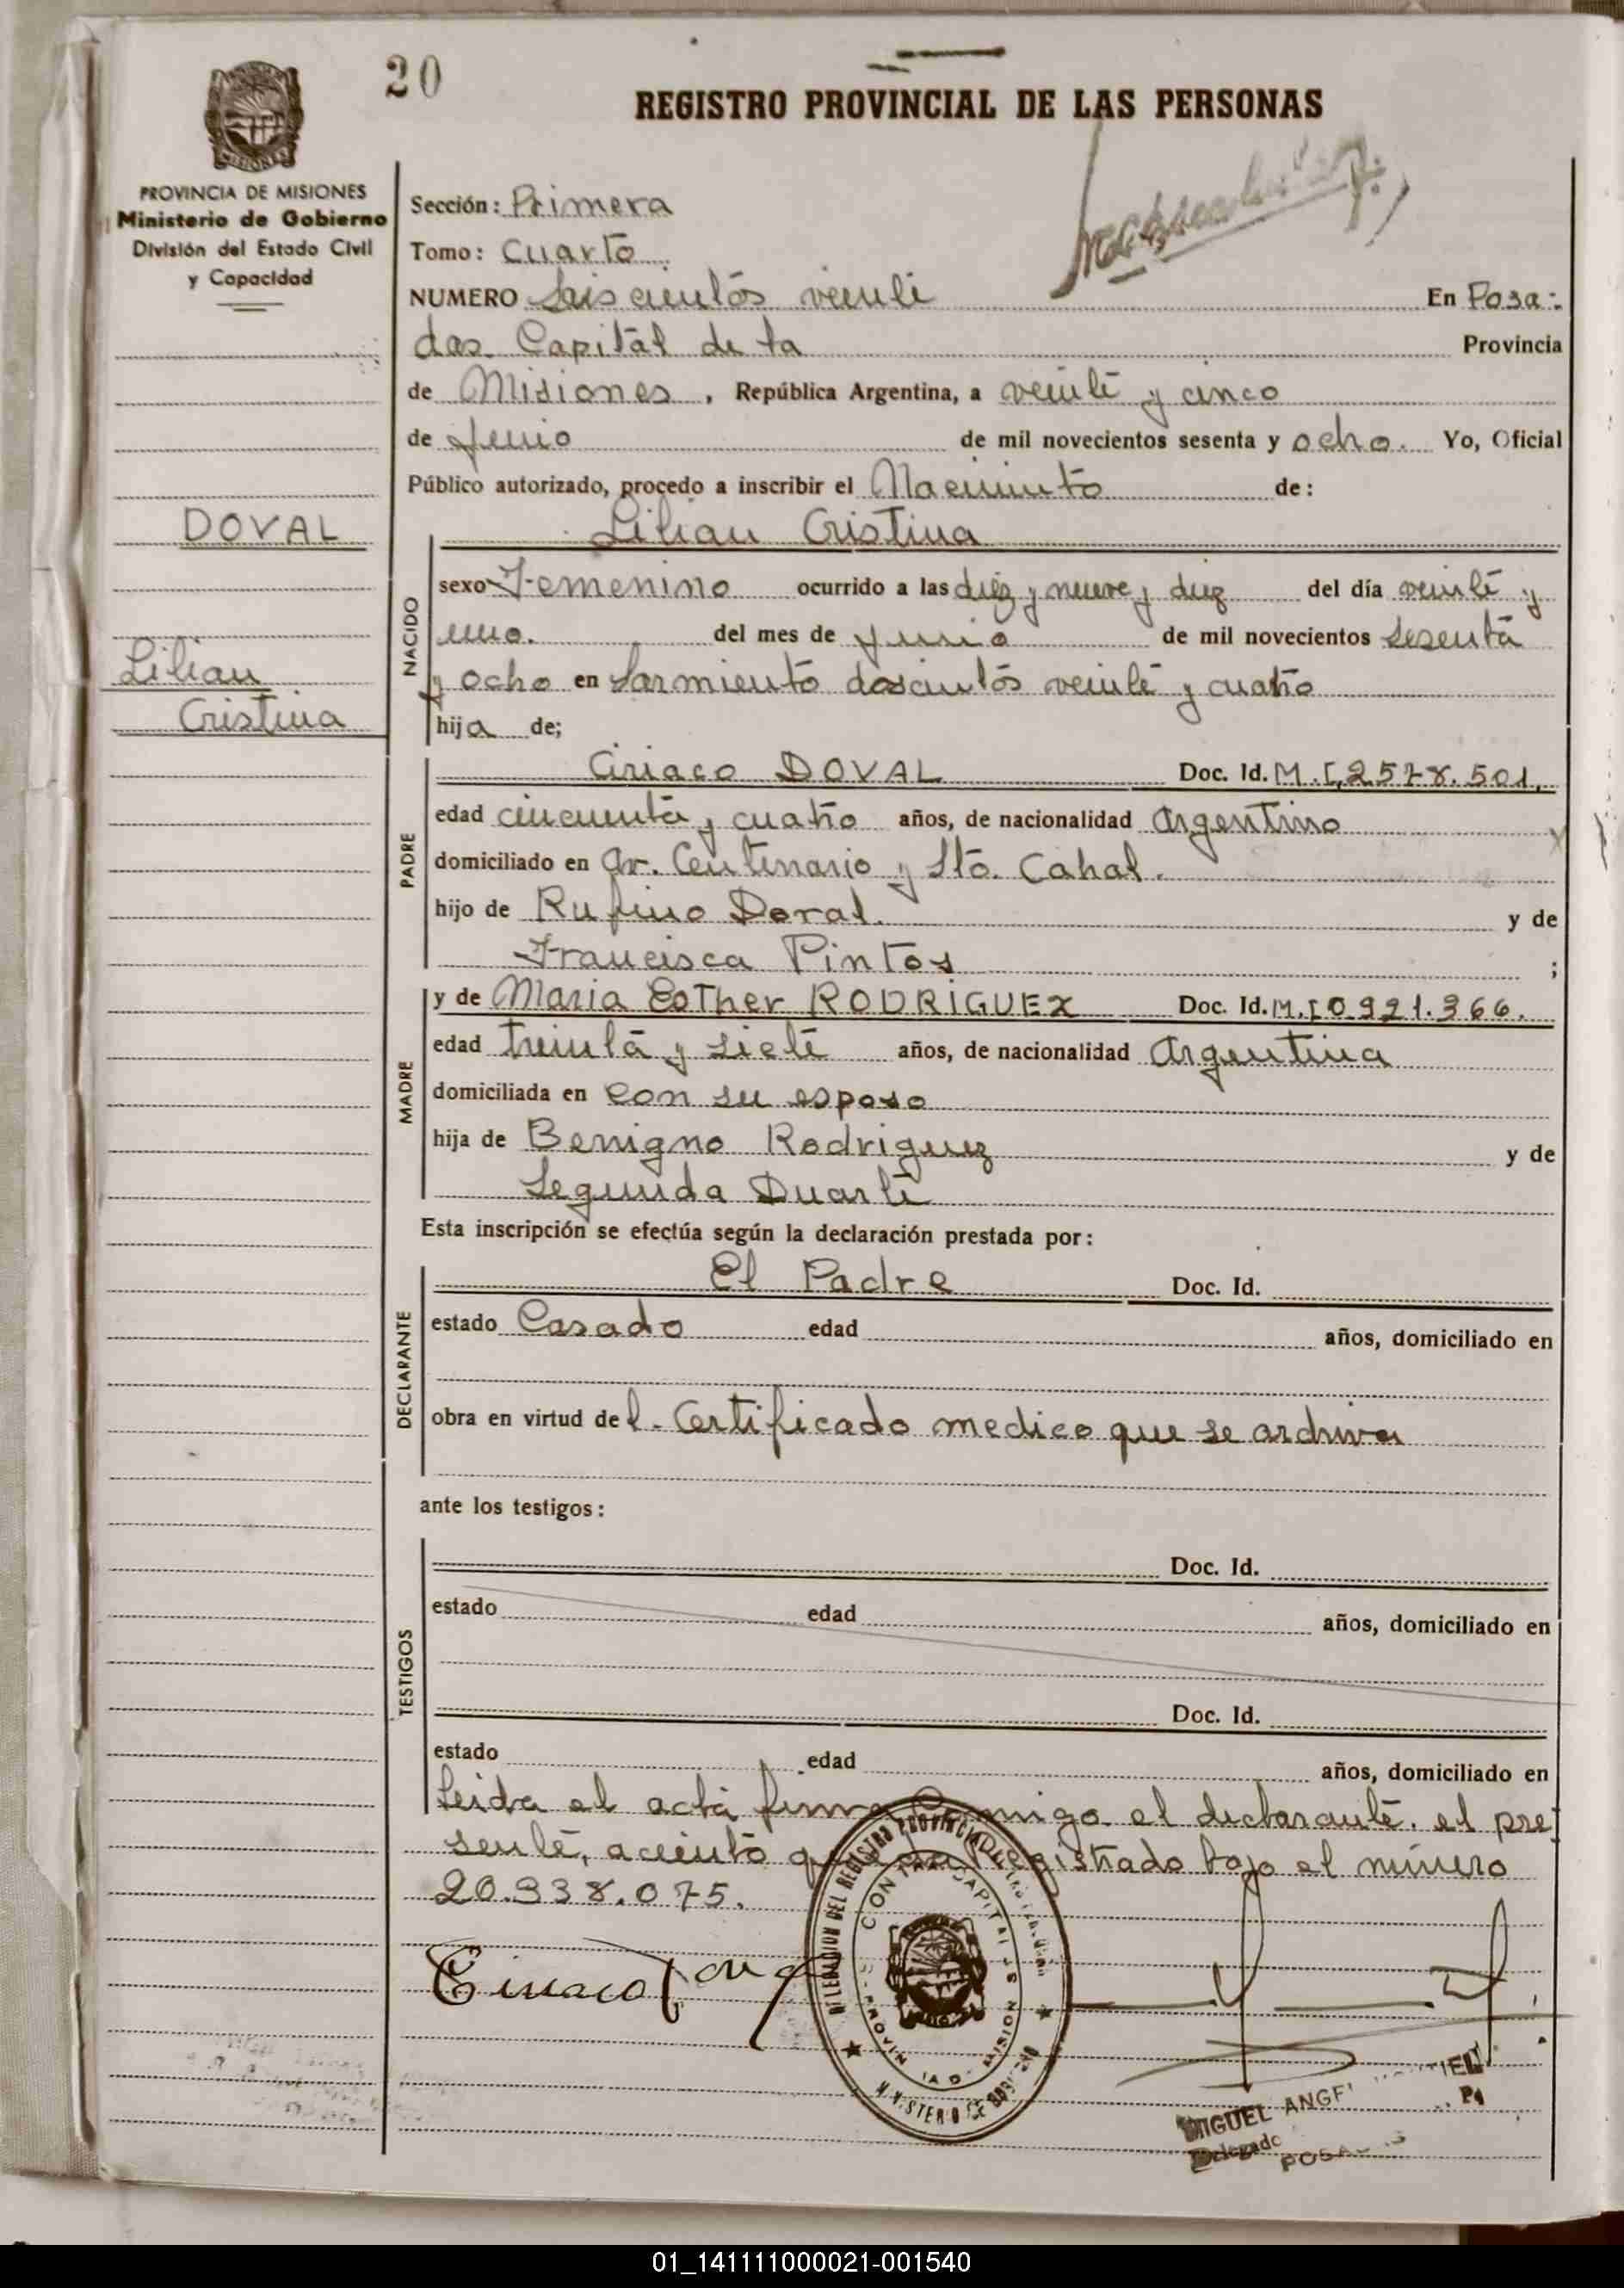 20
REGISTRO PROVINCIAL DE LAS PERSONAS
MISIONES
PROVINCIA DE MISIONES
Ministerio de Gobierno
División del Estado Civil
y Capacidad
Sección: Primera
Tomo: Cuarto
NUMERO Seiscientos veinte En Posa-
das Capital de la Provincia
de Misiones, República Argentina, a veinte y cinco
de Junio de mil novecientos sesenta y ocho. Yo, Oficial
Público autorizado, procedo a inscribir el Nacimiento de:
DOVAL
Lilian Cristina
NACIDO
sexo Femenino ocurrido a las diez y nueve y diez del día veinte y
uno. del mes de Junio de mil novecientos sesenta
Lilian
y ocho en Sarmiento doscientos veinte y cuatro
Cristina
hija de;
PADRE
Ciriaco DOVAL Doc. Id. M.I. 2578.501.
edad cincuenta y cuatro años, de nacionalidad Argentino
domiciliado en Av. Centenario y Sto. Cabal.
hijo de Rufino Doval. y de
Francisca Pintos ;
MADRE
y de Maria Esther RODRIGUEZ Doc. Id. M.I 0.921.366.
edad treinta y siete años, de nacionalidad Argentina
domiciliada en con su esposo
hija de Benigno Rodriguez y de
Segunda Duarte
Esta inscripción se efectúa según la declaración prestada por:
DECLARANTE
El Padre Doc. Id.
estado Casado edad años, domiciliado en
obra en virtud del. Certificado medico que se archiva
ante los testigos:
TESTIGOS
Doc. Id.
estado edad años, domiciliado en
Doc. Id.
estado edad años, domiciliado en
Leida el acta firma conmigo el declarante. el pre-
sente, aciento registrado bajo el número
20.338.075.
Ciriaco Doval
MIGUEL ANGEL
Delegado
POSADAS
01_141111000021-001540